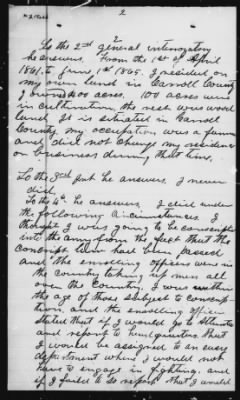 2
To the 2nd general interrogatory
he answers. From the 1st of April
1861 to June 1st 1865. I resided on
my own land in Carroll County
I owned 400 acres. 100 acres were
in cultivation, the rest was wood
land. It is situated in Carroll
County, my occupation was a farmer
and did not change my residence
or business during that time.
To the 3rd Int he answers, I never
did.
To the 4th he answers, I did under
the following circumstances. I
thought I was going to be conscripted
into the army from the fact that the
conscript law had been passed
and the enrolling officers were in
the country taking up men all
over the country. I was within
the age of those subject to conscrip
tion, and the enrolling officer
stated that if I would go to Atlanta
and report to headquarters that
I would be assigned to an easy
department where I would not
have to engage in fighting, and
if I failed to so report that I would